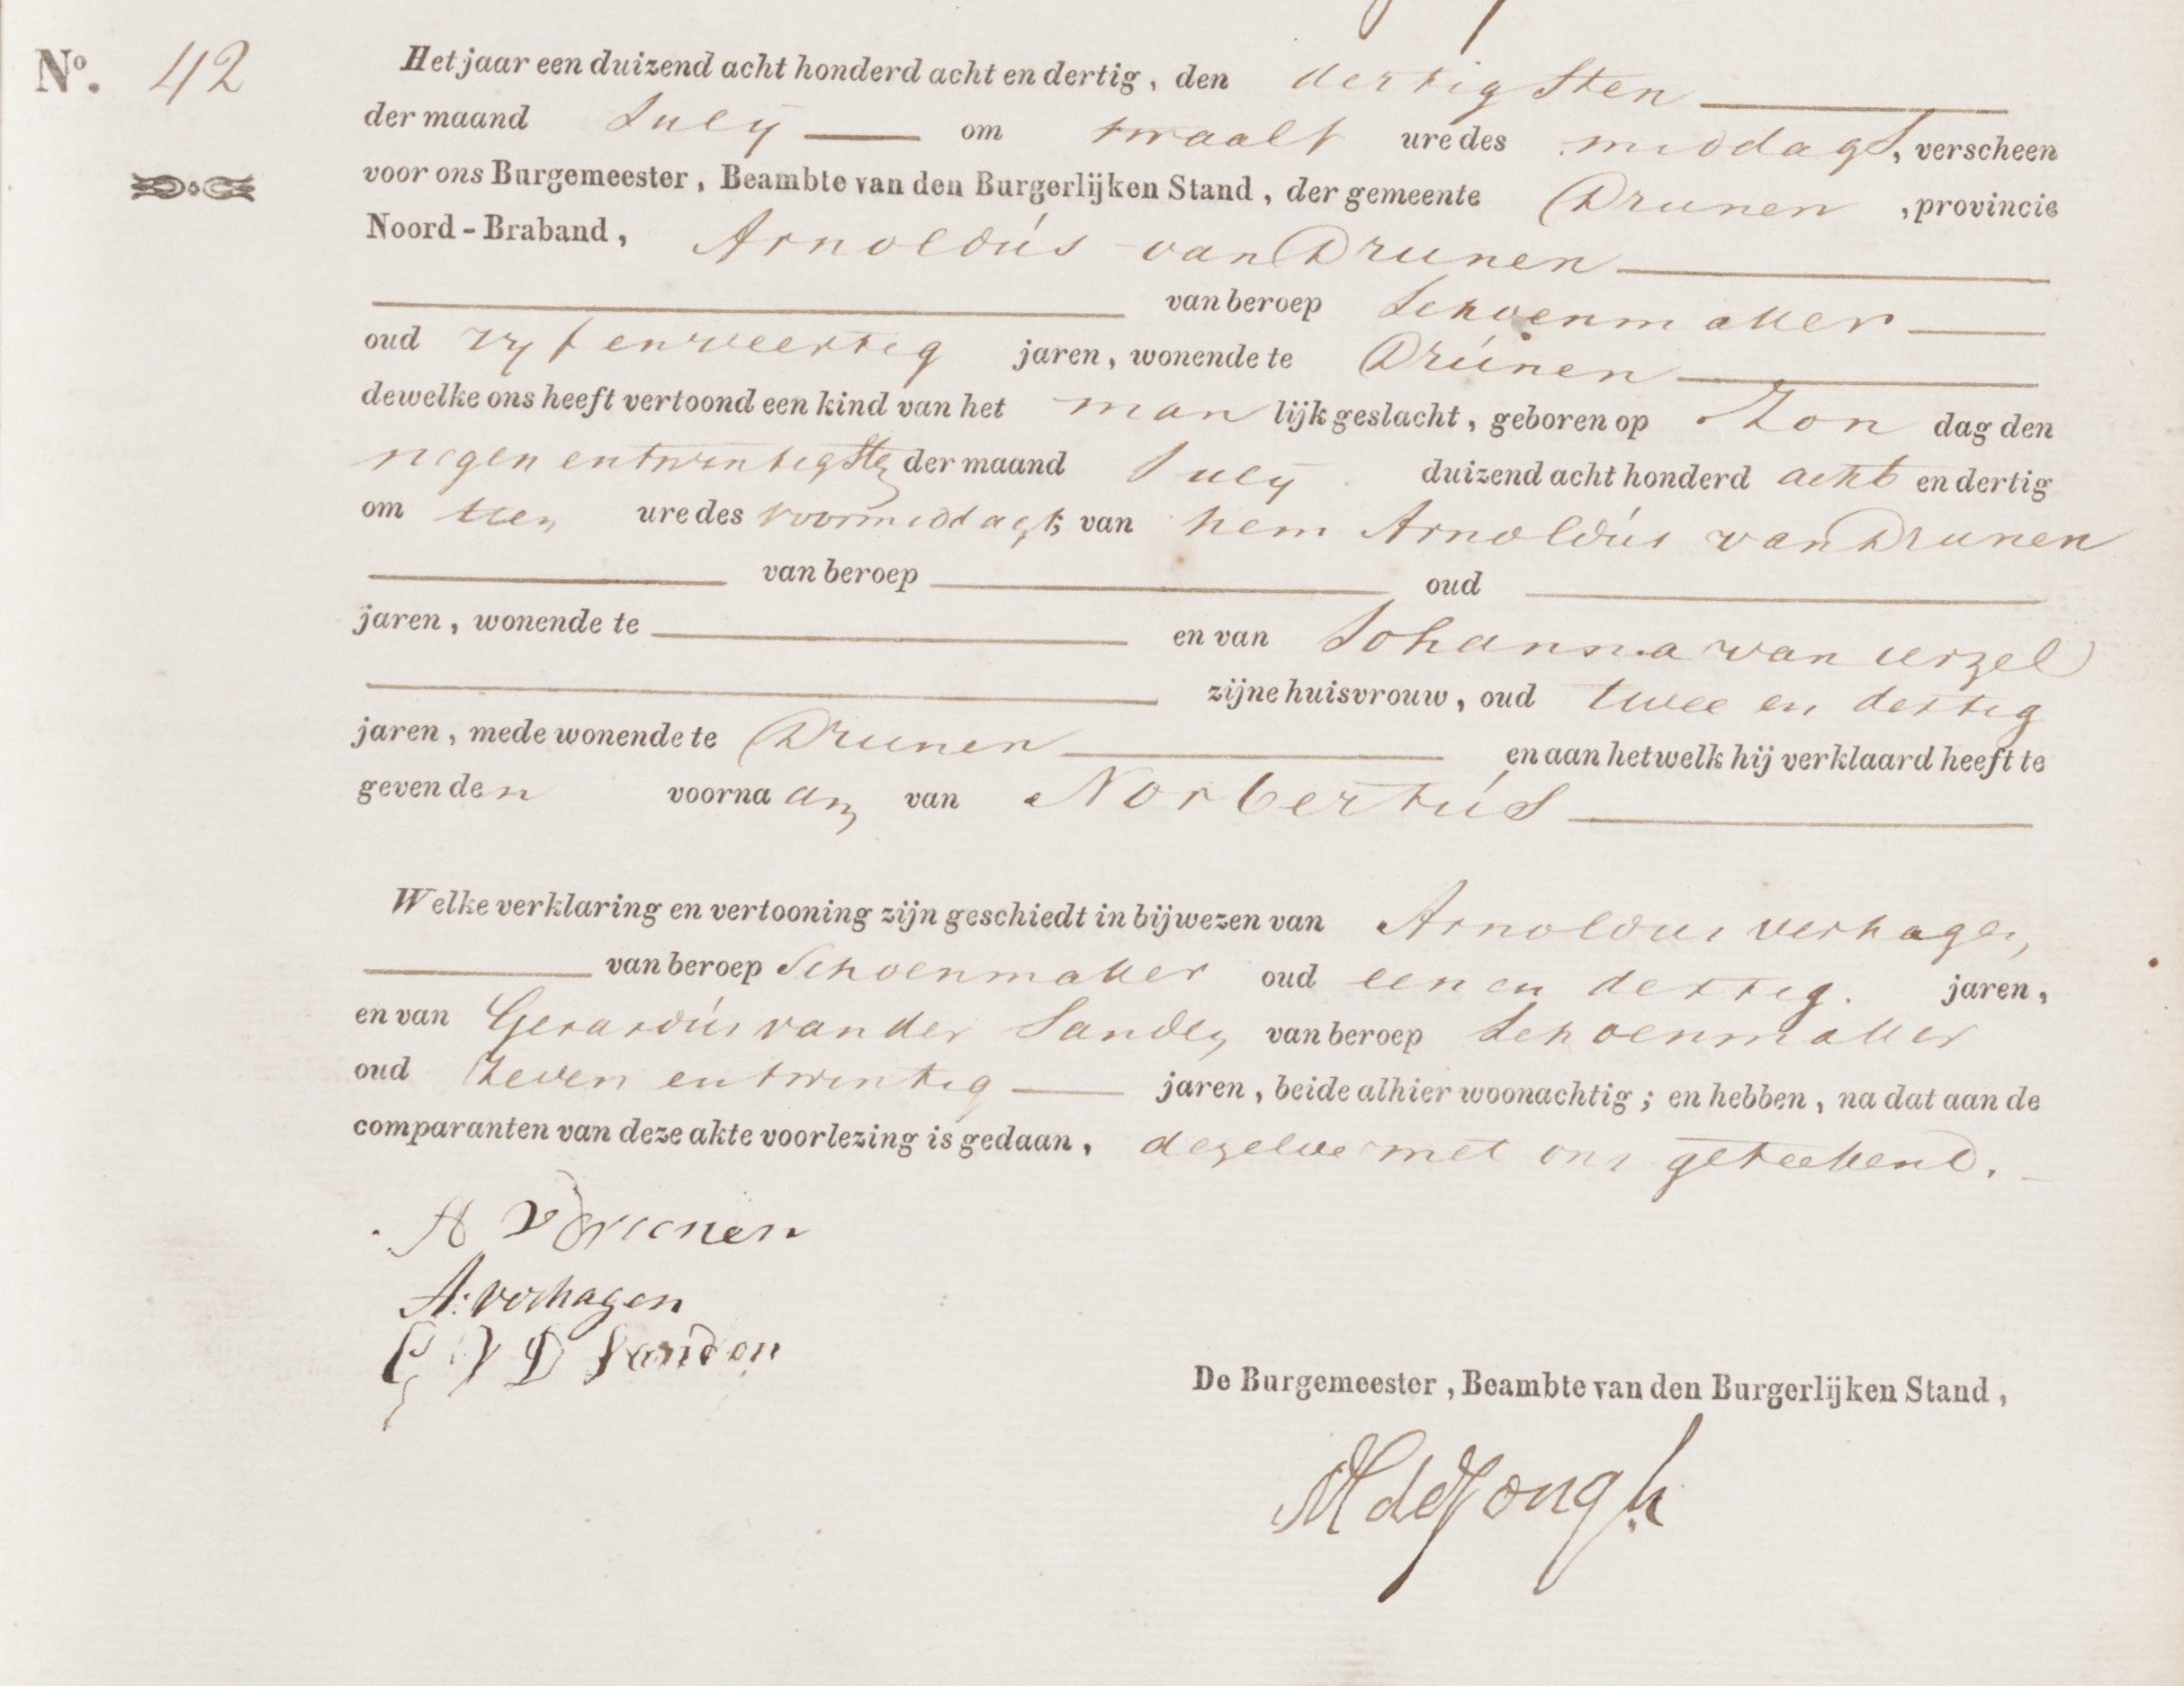 No. 42
Het jaar een duizend acht honderd acht en dertig, den dertigsten
der maand July om twaalf ure des middags, verscheen
voor ons Burgemeester, Beambte van den Burgerlijken Stand, der gemeente Drunen, provincie
Noord-Braband, Arnoldús van Drunen
van beroep Schoenmaker
oud vyf en veertig jaren, wonende te Drúnen
dewelke ons heeft vertoond een kind van het manlijk geslacht, geboren op Zon dag den
negen en twintigste der maand July duizend acht honderd acht en dertig
om tien ure des voormiddags, van hem Arnoldús van Drunen
van beroep oud
jaren, wonende te en van Johanna van
zijne huisvrouw, oud twee en dertig
jaren, mede wonende te Drunen en aan hetwelk hij verklaard heeft te
geven den voornaam van Norbertús
Welke verklaring en vertooning zijn geschiedt in bijwezen van Arnoldus verhagen
van beroep Schoenmaker oud een en dertig. jaren,
en van Gerardús van der Sanden van beroep Schoenmaker
oud Zeven en twintig jaren, beide alhier woonachtig; en hebben, na dat aan de
comparanten van deze akte voorlezing is gedaan, dezelve met ons geteekend.
A v Drunen
A. verhagen
G V D Sanden
De Burgemeester, Beambte van den Burgerlijken Stand,
de Jongh